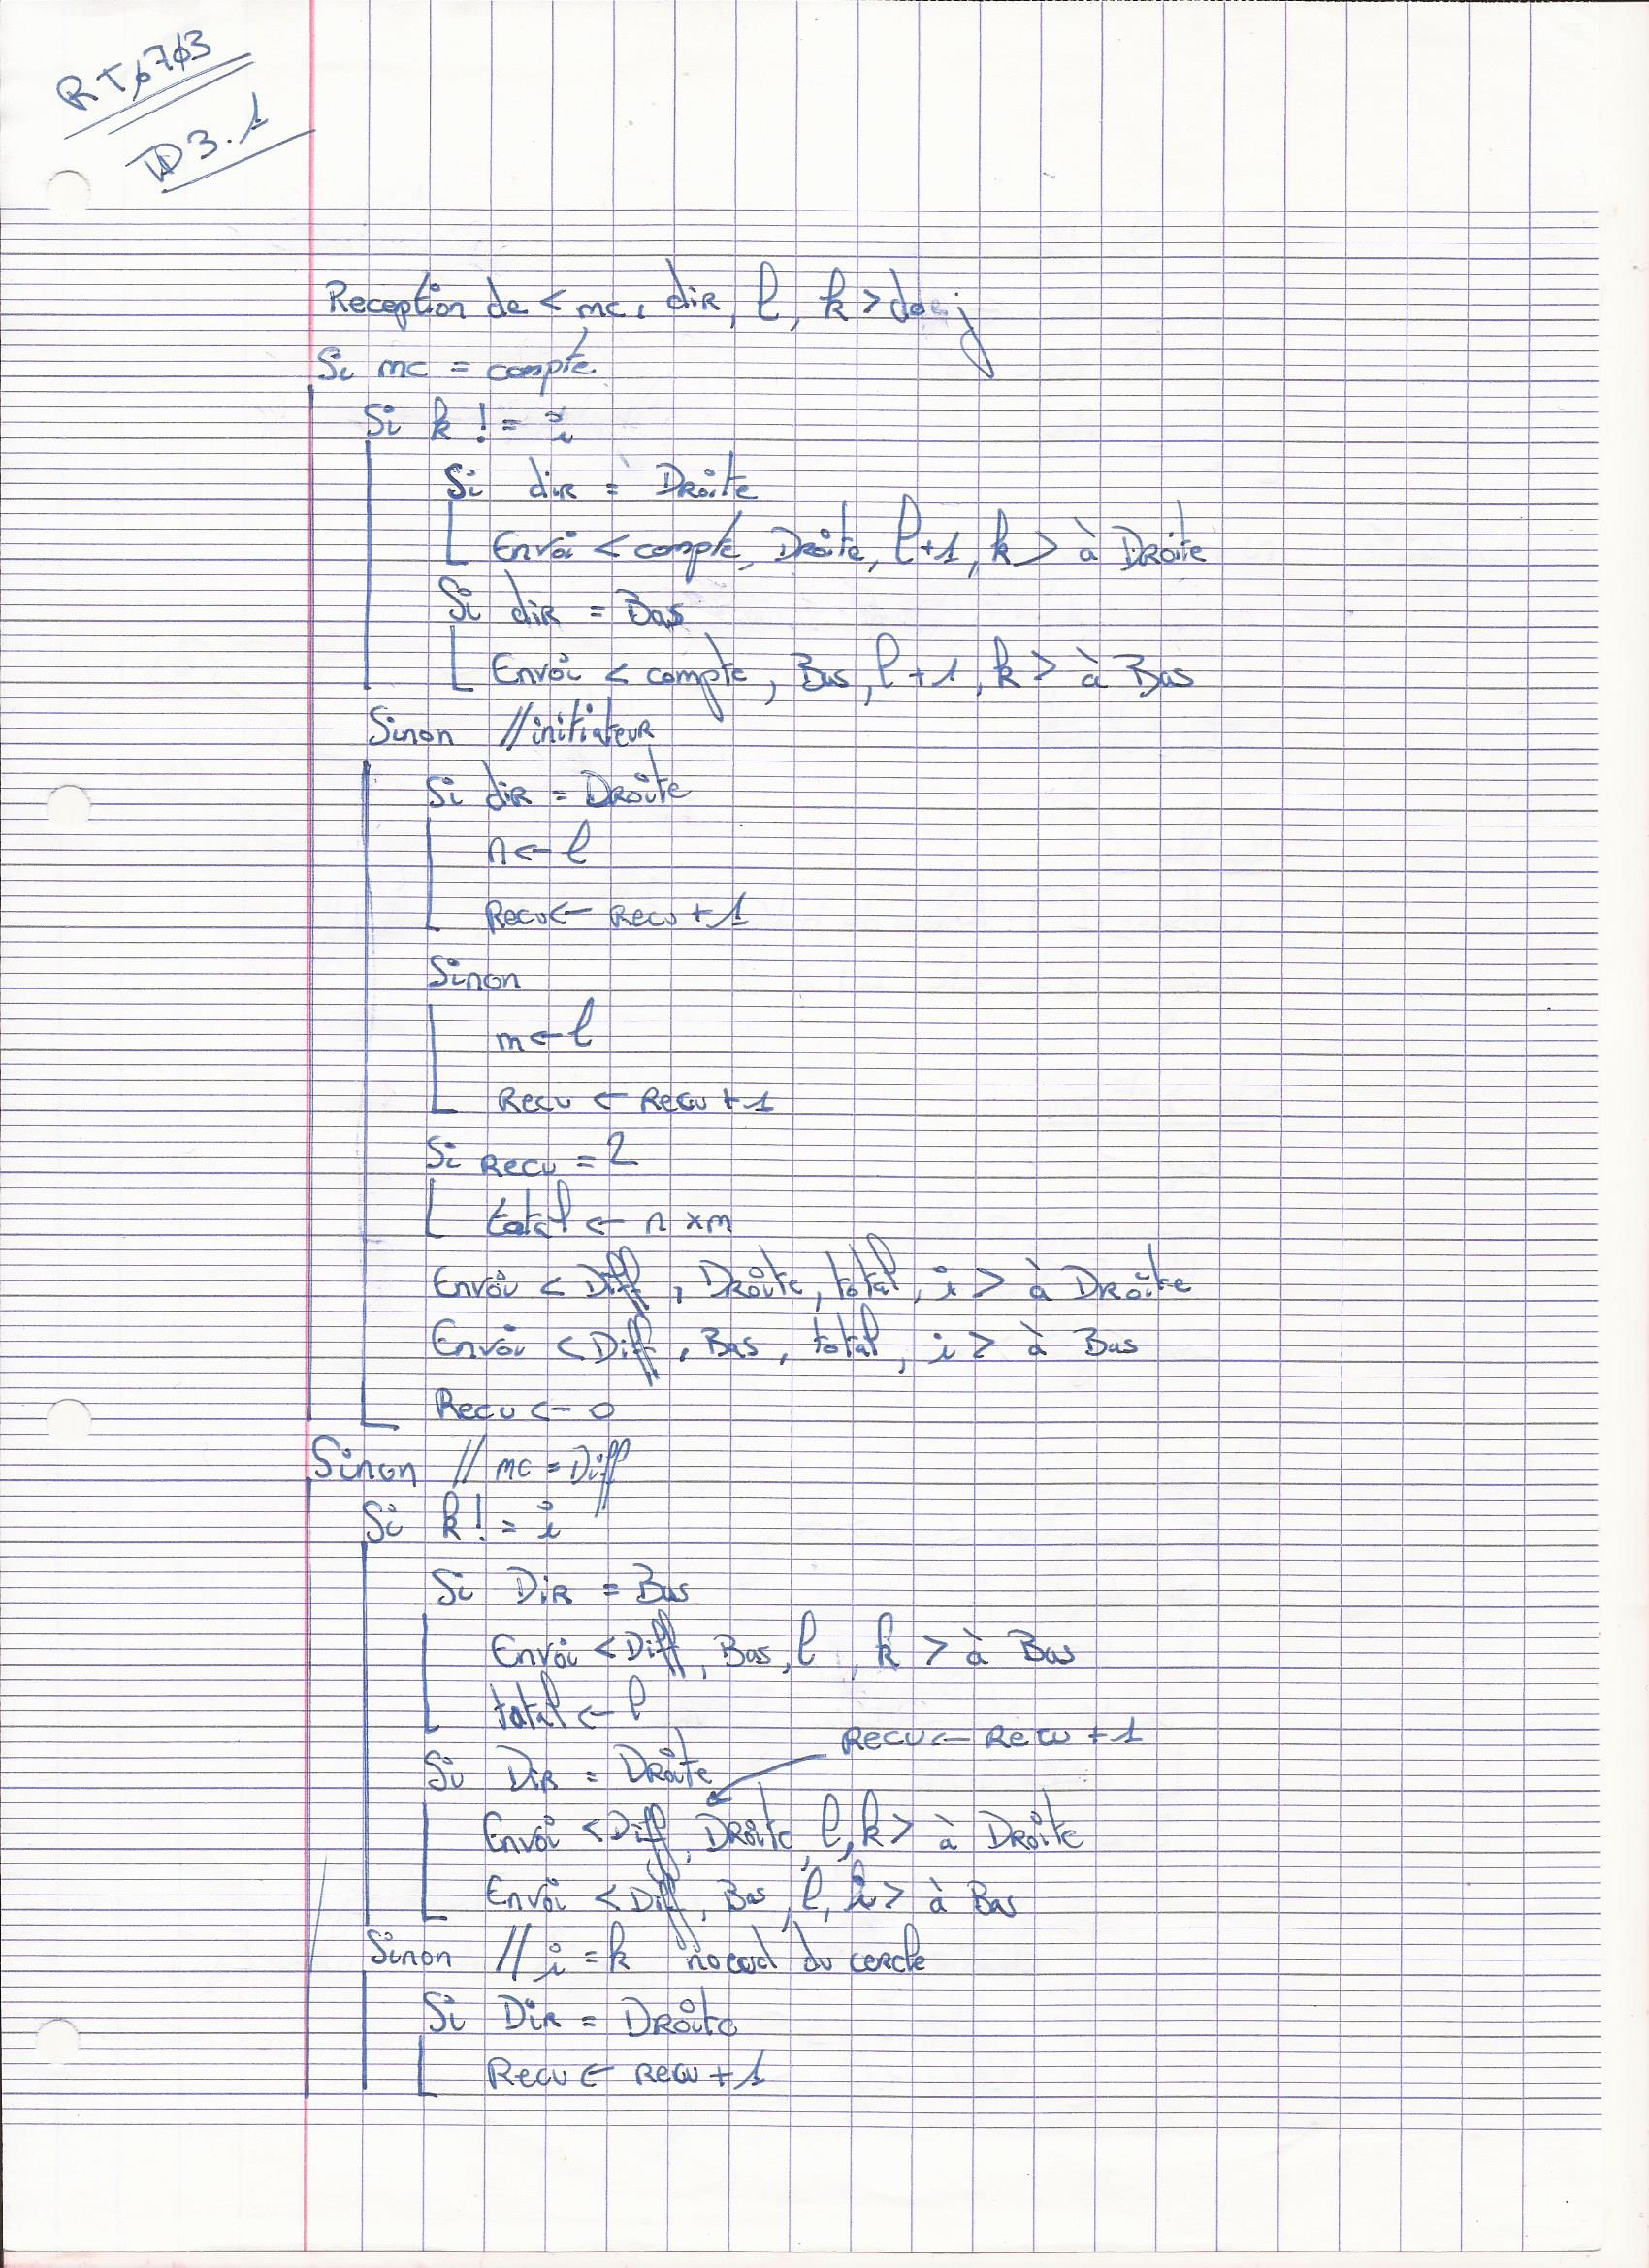 RT0703
TD 3.1
Reception de < mc, dir, l, k > de j
Si mc = compte
Si k != i
Si dir = Droite
Envoi < compte, Droite, l+1, k > à Droite
Si dir = Bas
Envoi < compte, Bas, l+1, k > à Bas
Sinon // initiateur
Si dir = Droite
n ← l
Recu ← Recu + 1
Sinon
m ← l
Recu ← Recu + 1
Si Recu = 2
total ← n × m
Envoi < Diff, Droite, total, i > à Droite
Envoi < Diff, Bas, total, i > à Bas
Recu ← 0
Sinon // mc = Diff
Si k != i
Si Dir = Bas
Envoi < Diff, Bas, l, k > à Bas
total ← l
Recu ← Recu + 1
Si Dir = Droite
Envoi < Diff, Droite, l, k > à Droite
Envoi < Diff, Bas, l, i > à Bas
Sinon // i = k noeud du cercle
Si Dir = Droite
Recu ← recu + 1